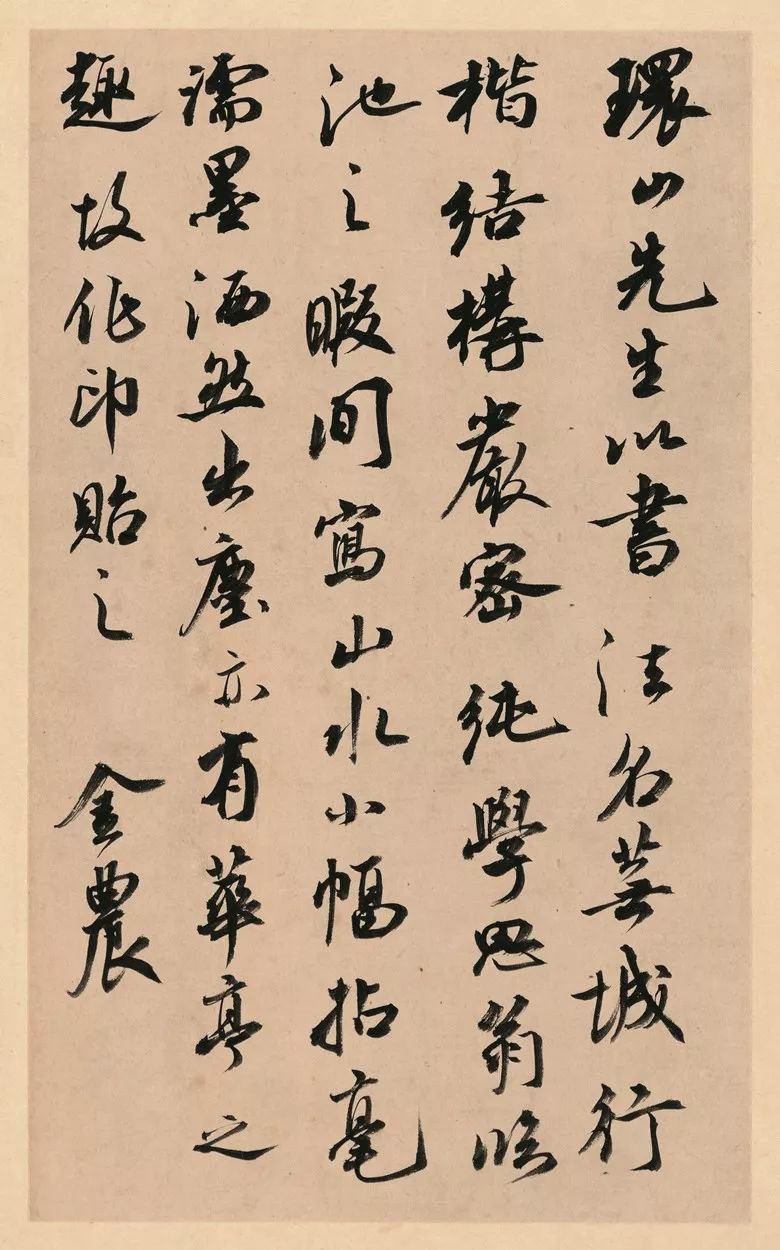 環山先生以書法名蕪城行
楷結構嚴密純學思翁臨
池之暇間寫山水小幅拈毫
濡墨洒然出塵亦有華亭之
趣故作印貽之 金農